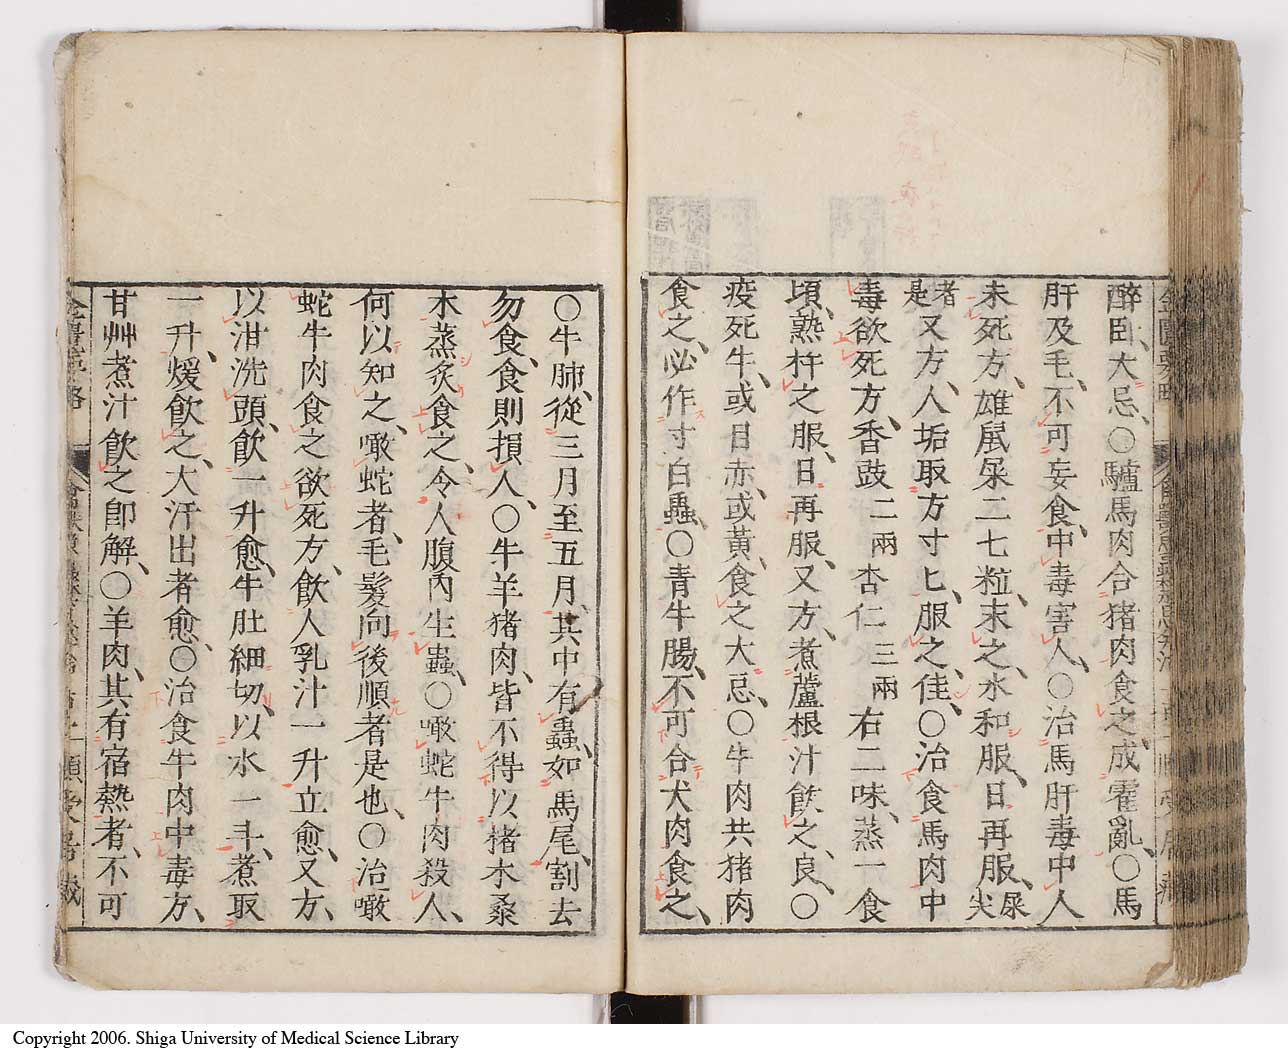 醉臥、大忌、○驢馬肉合猪肉食之、成霍亂、○馬
肝及毛、不可妄食、中毒害人、○治馬肝毒中人
未死方、雄鼠屎二七粒、末之、水和服、日再服、屎尖
者是又方、人垢取方寸匕、服之、佳、○治食馬肉中
毒欲死方、香豉二兩杏仁三兩右二味、蒸一食
頃、熟杵之服、日再服、又方、煮蘆根汁飲之、良、○
疫死牛、或目赤、或黃、食之大忌、○牛肉共猪肉
食之、必作寸白蟲、○青牛腸、不可合犬肉食之、
○牛肺、從三月至五月、其中有蟲、如馬尾、割去
勿食、食則損人、○牛羊猪肉、皆不得以楮木桑
木蒸炙食之、令人腹內生蟲、○噉蛇牛肉殺人、
何以知之、噉蛇者、毛髮向後順者是也、○治噉
蛇牛肉食之欲死方、飲人乳汁一升立愈、又方、
以泔洗頭、飲一升愈、牛肚細切、以水一斗、煮取
一升、煖飲之、大汗出者愈、○治食牛肉中毒方、
甘艸煮汁飲之即解、○羊肉、其有宿熱者、不可
Copyright 2006. Shiga University of Medical Science Library